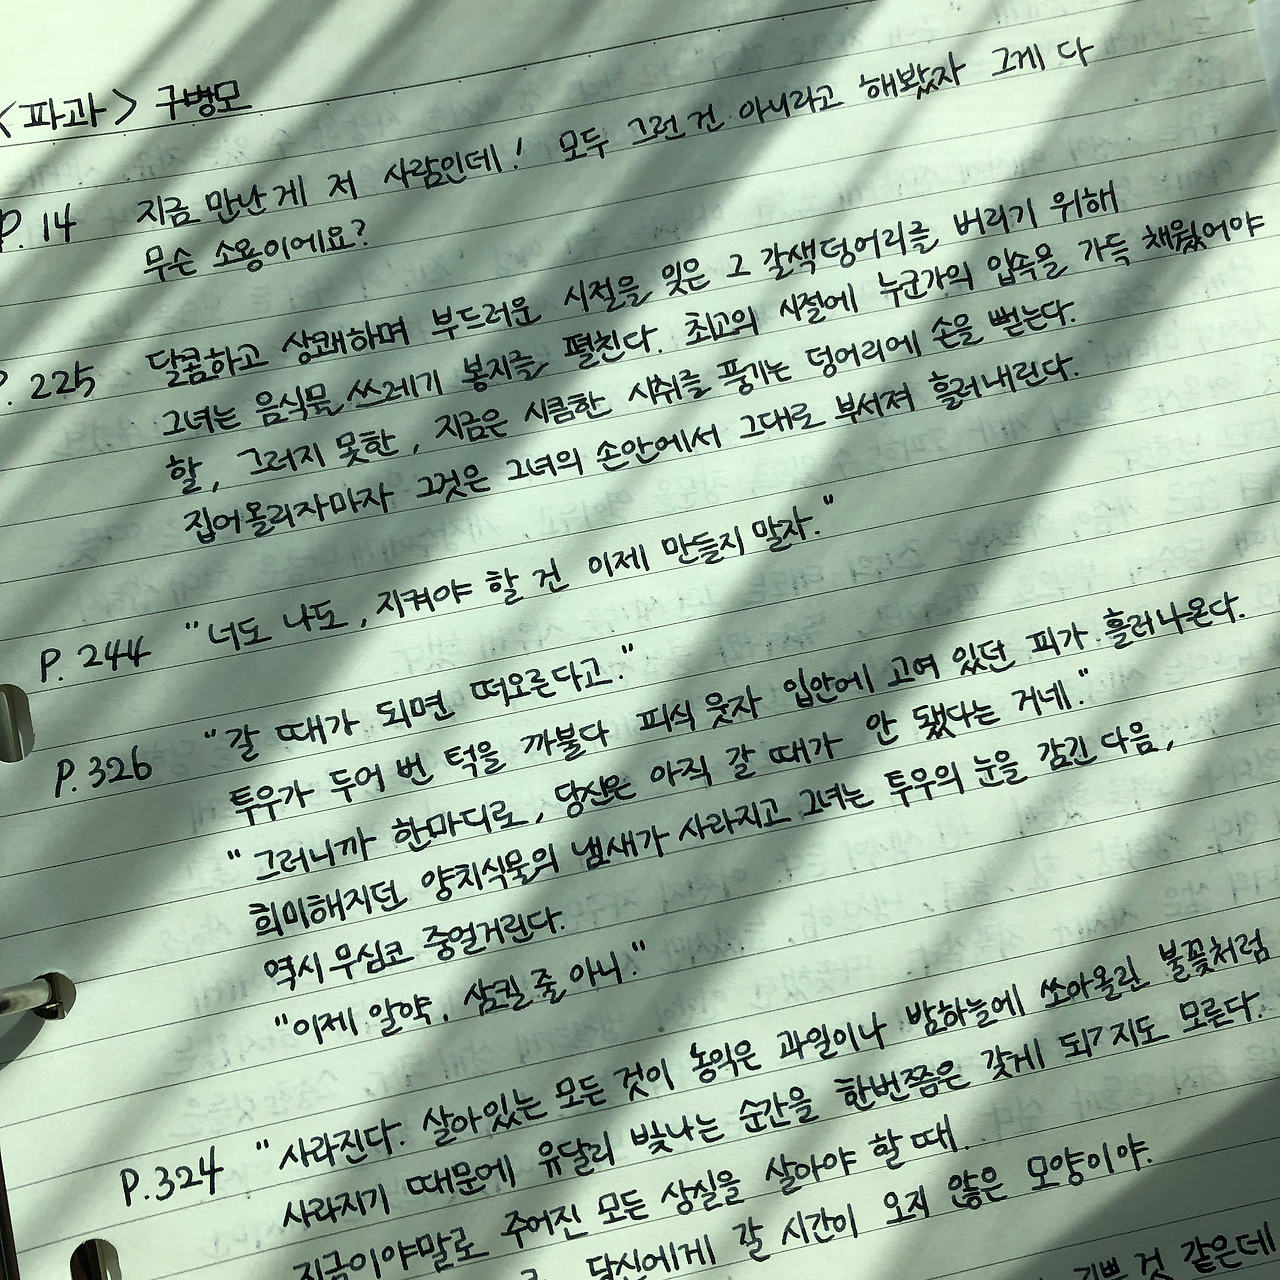 <파과> 구병모
P.14 지금 만난 게 저 사람인데! 모두 그런 건 아니라고 해봤자 그게 다
무슨 소용이에요?
P.225 달콤하고 상쾌하며 부드러운 시절을 잊은 그 갈색덩어리를 버리기 위해
그녀는 음식물 쓰레기 봉지를 펼친다. 최고의 시절에 누군가의 입속을 가득 채웠어야
할, 그러지 못한, 지금은 시큼한 시취를 풍기는 덩어리에 손을 뻗는다.
집어올리자마자 그것은 그녀의 손안에서 그대로 부서져 흘러내린다.
P.244 "너도 나도, 지켜야 할 건 이제 만들지 말자."
P.326 "갈 때가 되면 떠오른다고."
투우가 두어 번 턱을 까불다 피식 웃자 입안에 고여 있던 피가 흘러나온다.
"그러니까 한마디로, 당신은 아직 갈 때가 안 됐다는 거네."
희미해지던 양치식물의 냄새가 사라지고 그녀는 투우의 눈을 감긴 다음,
역시 무심코 중얼거린다.
"이제 알약, 삼킬 줄 아니."
P.324 "사라진다. 살아있는 모든 것이 농익은 과일이나 밤하늘에 쏘아올린 불꽃처럼
사라지기 때문에 유달리 빛나는 순간을 한번쯤은 갖게 되는지도 모른다.
지금이야말로 주어진 모든 상실을 살아야 할 때.
당신에게 갈 시간이 오지 않은 모양이야.
것 같은데